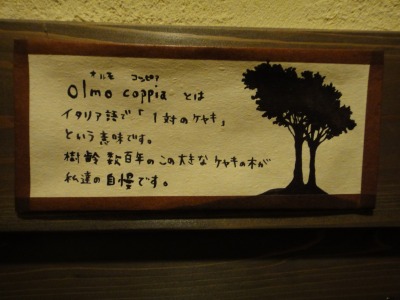 オルモ コッピア
olmo coppia とは
イタリア語で「1対のケヤキ」
という意味です。
樹齢数百年のこの大きなケヤキの木が
私達の自慢です。